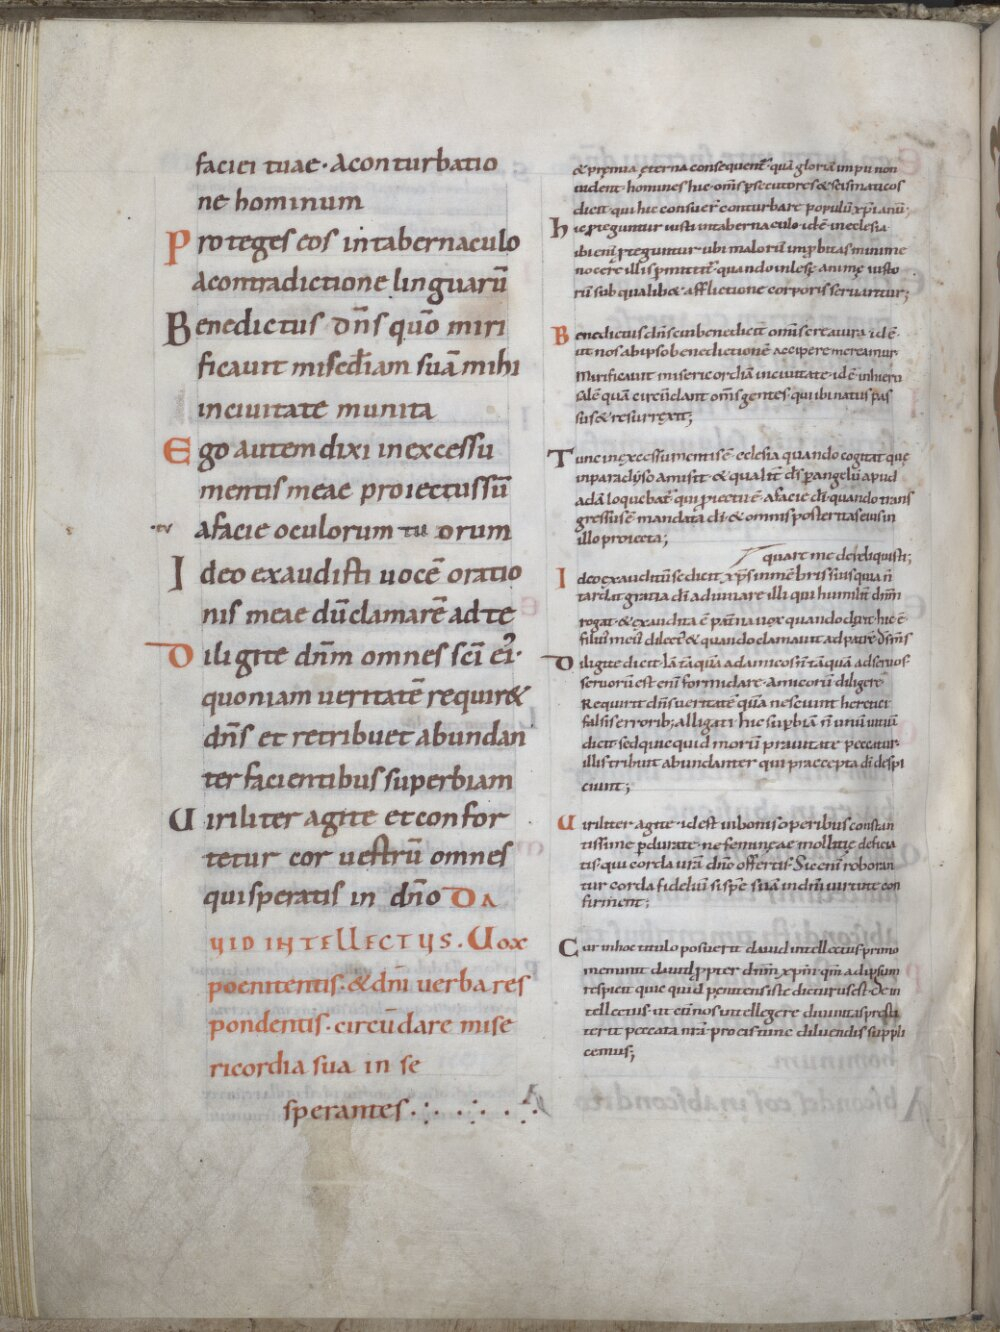 faciei tuae · Aconturbatio
ne hominum
Proteges eos in tabernaculo
acontradictione linguarū
Benedictus dn̄s quō miri
ficauit miscd̄iam suā mihi
inciuitate munita
Ego autem dixi in excessu
mentis meae proiectus sū
afacie oculorum tuorum
Ideo exaudisti uocē oratio
nis meae dū clamarē ad te
Diligite dn̄m omnes sc̄i ei ·
quoniam ueritatē requir&
dn̄s et retribuet abundan
ter facientibus superbiam
Uiriliter agite et confor
tetur cor uestrū omnes
qui speratis in dn̄o DA
UID INTELLECTUS . Uox
poenitentis · & dn̄i uerba res
pondentis · circūdare mise
ricordia sua in se
sperantes
& premia ęterna consequent̄ · quā gloriā impii non
uident · homines hic · om̄s ꝑsecutores & scismaticos
dicit · qui hic consuer̄ conturbare populū xp̄ianū ;
hic proteguntur iusti intabernaculo id ē in eclesia
ibi eni proteguntur · ubi malorū improbitas minime
nocere illis pmittit̄ · quando inlesę animę iusto
rū sub qualib& afflictione corporis seruantur ;
Benedictus dn̄s cui benedicit om̄is creatura · id ē ·
ut nos ab ipso benedictionē accipere mereamur
Mirificauit misericordiā inciuitate · id ē in hieru
salē quā circūdant om̄s gentes · qui ibi natus pas
sus & resurrexit ;
Tunc in excessu mentis ē · eclesia quando cogitat que
in paradyso amisit · & qualit̄ d̄s ꝑ angelū apud
adā loquebat̄ · qui proiectu ē · afacie d̄i · quando trans
gressus ē mandata d̄i · & omnis posteritas eius in
illo proiecta ;
quare me dereliquisti ;
Ideo exauditū se dicit xp̄s in mēbris suis quia n̄
tardat gratia d̄i adiuuare illi qui humilit̄ dn̄m
rogat · & exaudita ē pat̄na uox quando dixit hic ē
filius meus dilect̄ & quando clamauit ad patrē d̄s m̄s
Diligite dicit · lā tāquā ad amicos n̄ tāquā ad seruos ·
seruorū est eni formidare · Amicorū diligere
Requirit dn̄s ueritatē quā nesciunt heretici
falsis errorib; alligati hic supbiā n̄ unū uitiū
dicit sed quicquid morū prauitate peccatur ·
illis tribuit abundanter qui praecepta d̄i despi
ciunt ;
Uiriliter agite · id est in bonis operibus constan
tissime pdurate · ne femineae mollitię deficia
tis · qui corda urā dn̄o offertis · Sic eni roboran
tur corda fideliū si spē suā in dn̄i uirtute con
firment ;
Cur in hoc titulo posuerit dauid intellectus · primo
meminit dauid propter dn̄m xp̄m qm̄ ad ipsum
respicit quicquid penitens iste dicturus est · De in
tellectus · ut eū nos intellegere diuinitas presti
terit peccata nr̄a procis tunc diluendis suppli
cemus ;